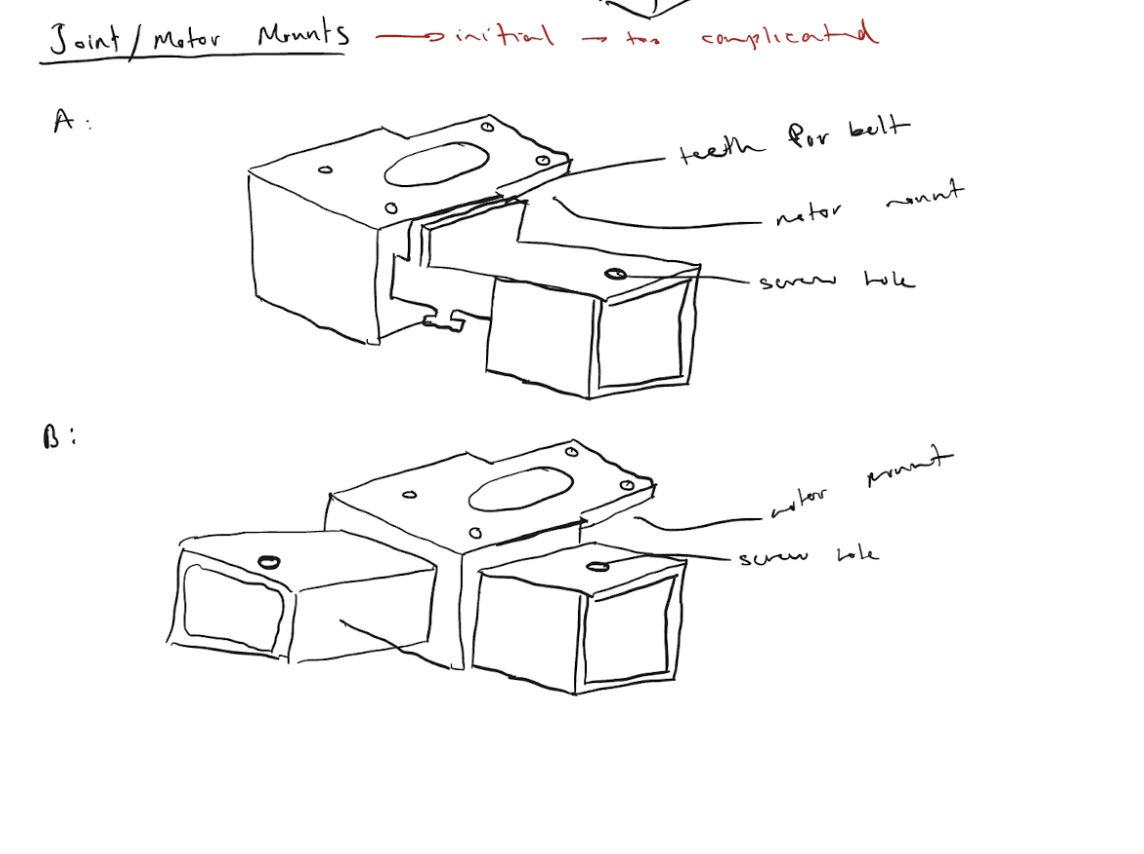 Joint / Motor Mounts → initial → too complicated
A:
teeth for belt
motor mount
screw hole
B:
motor mount
screw hole